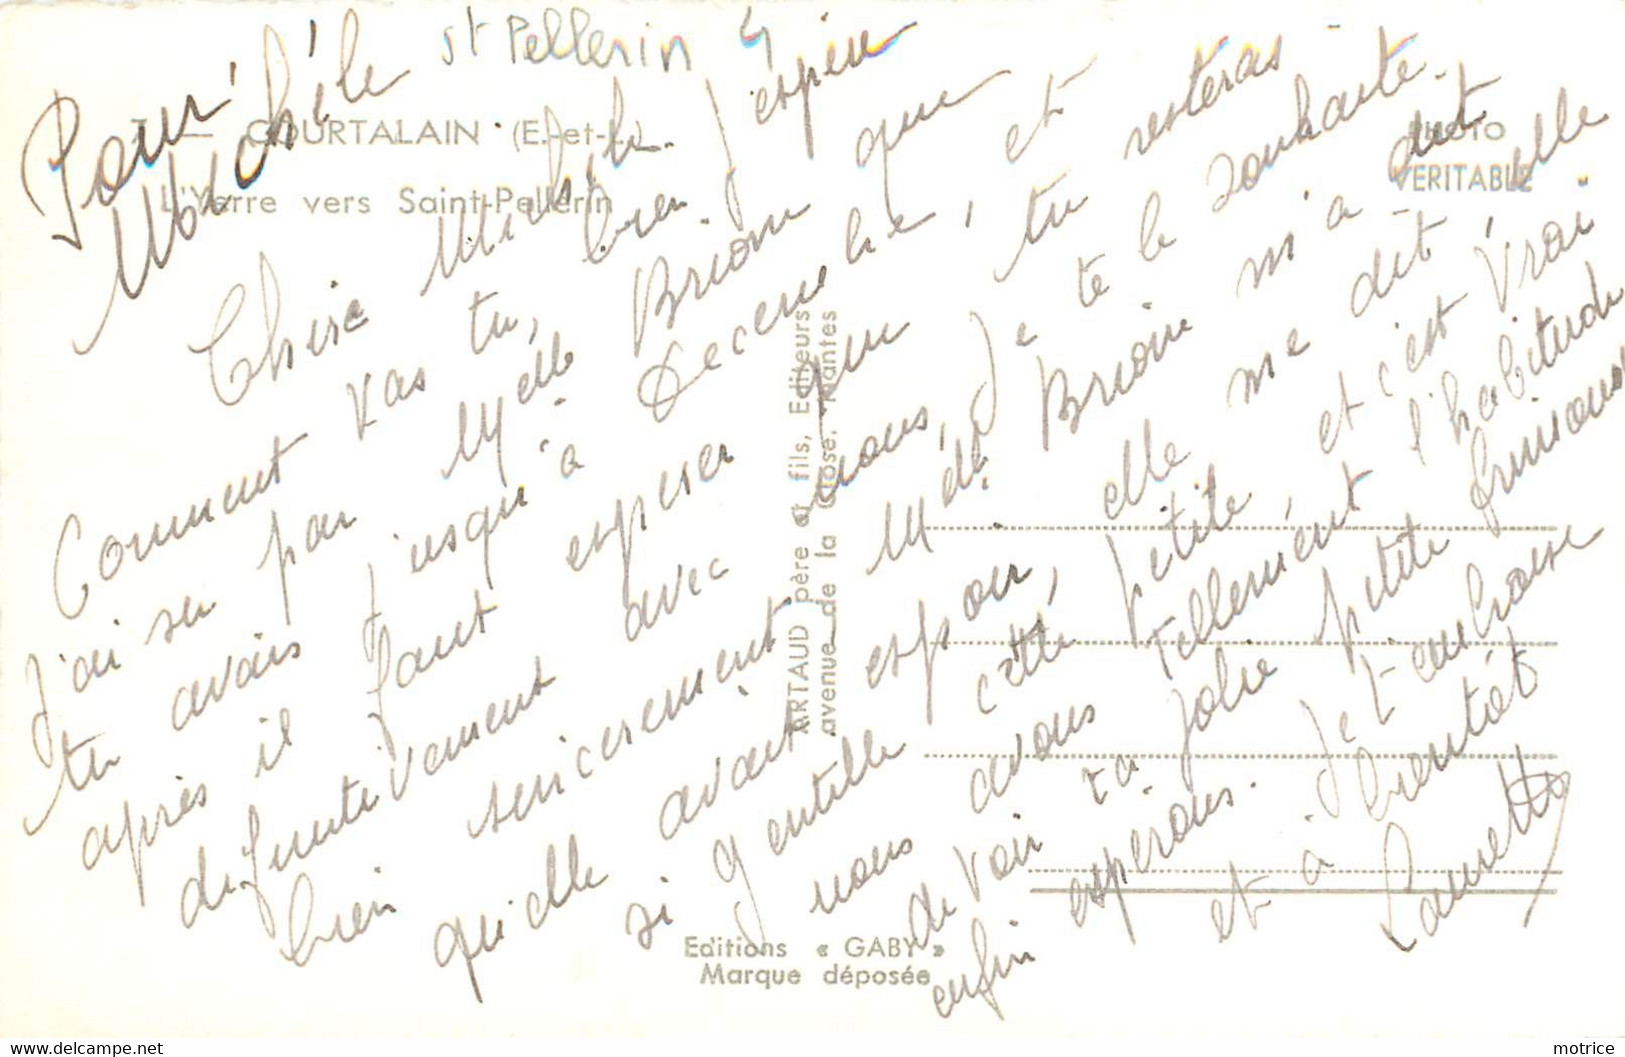 St Pellerin 4
Pour
Michèle
7 — COURTALAIN (E.-et-L.)
L'Yerre vers Saint-Pellerin
PHOTO
VERITABLE
Chère Michèle.
Comment vas tu, bien. J'espère
J'ai su par Melle Brion que
tu avais jusqu'à decembre, et
après il faut esperer que tu resteras
definitivement avec nous, je te le souhaite.
bien sincerement Melle Brion m'a dit
qu'elle avait espoir, elle me dit elle
si gentille cette petite et c'est vrai
nous avons tellement l'habitude
de voir ta jolie petite frimousse
enfin esperons. Je t'embrasse
et à bientôt
Laurette
ARTAUD père et fils, Editeurs
avenue de la Close, Nantes
Editions « GABY »
Marque déposée
motrice